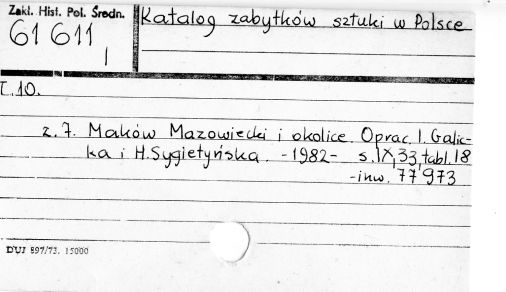 Zakł. Hist. Pol. Średn.
61 611
I
Katalog zabytków sztuki w Polsce
T. 10.
z. 7. Maków Mazowiecki i okolice. Oprac. I. Galic-
ka i H. Sygietyńska. -1982- s. IX, 33, tabl. 18
-inw. 77973
DUJ 897/73. 15000